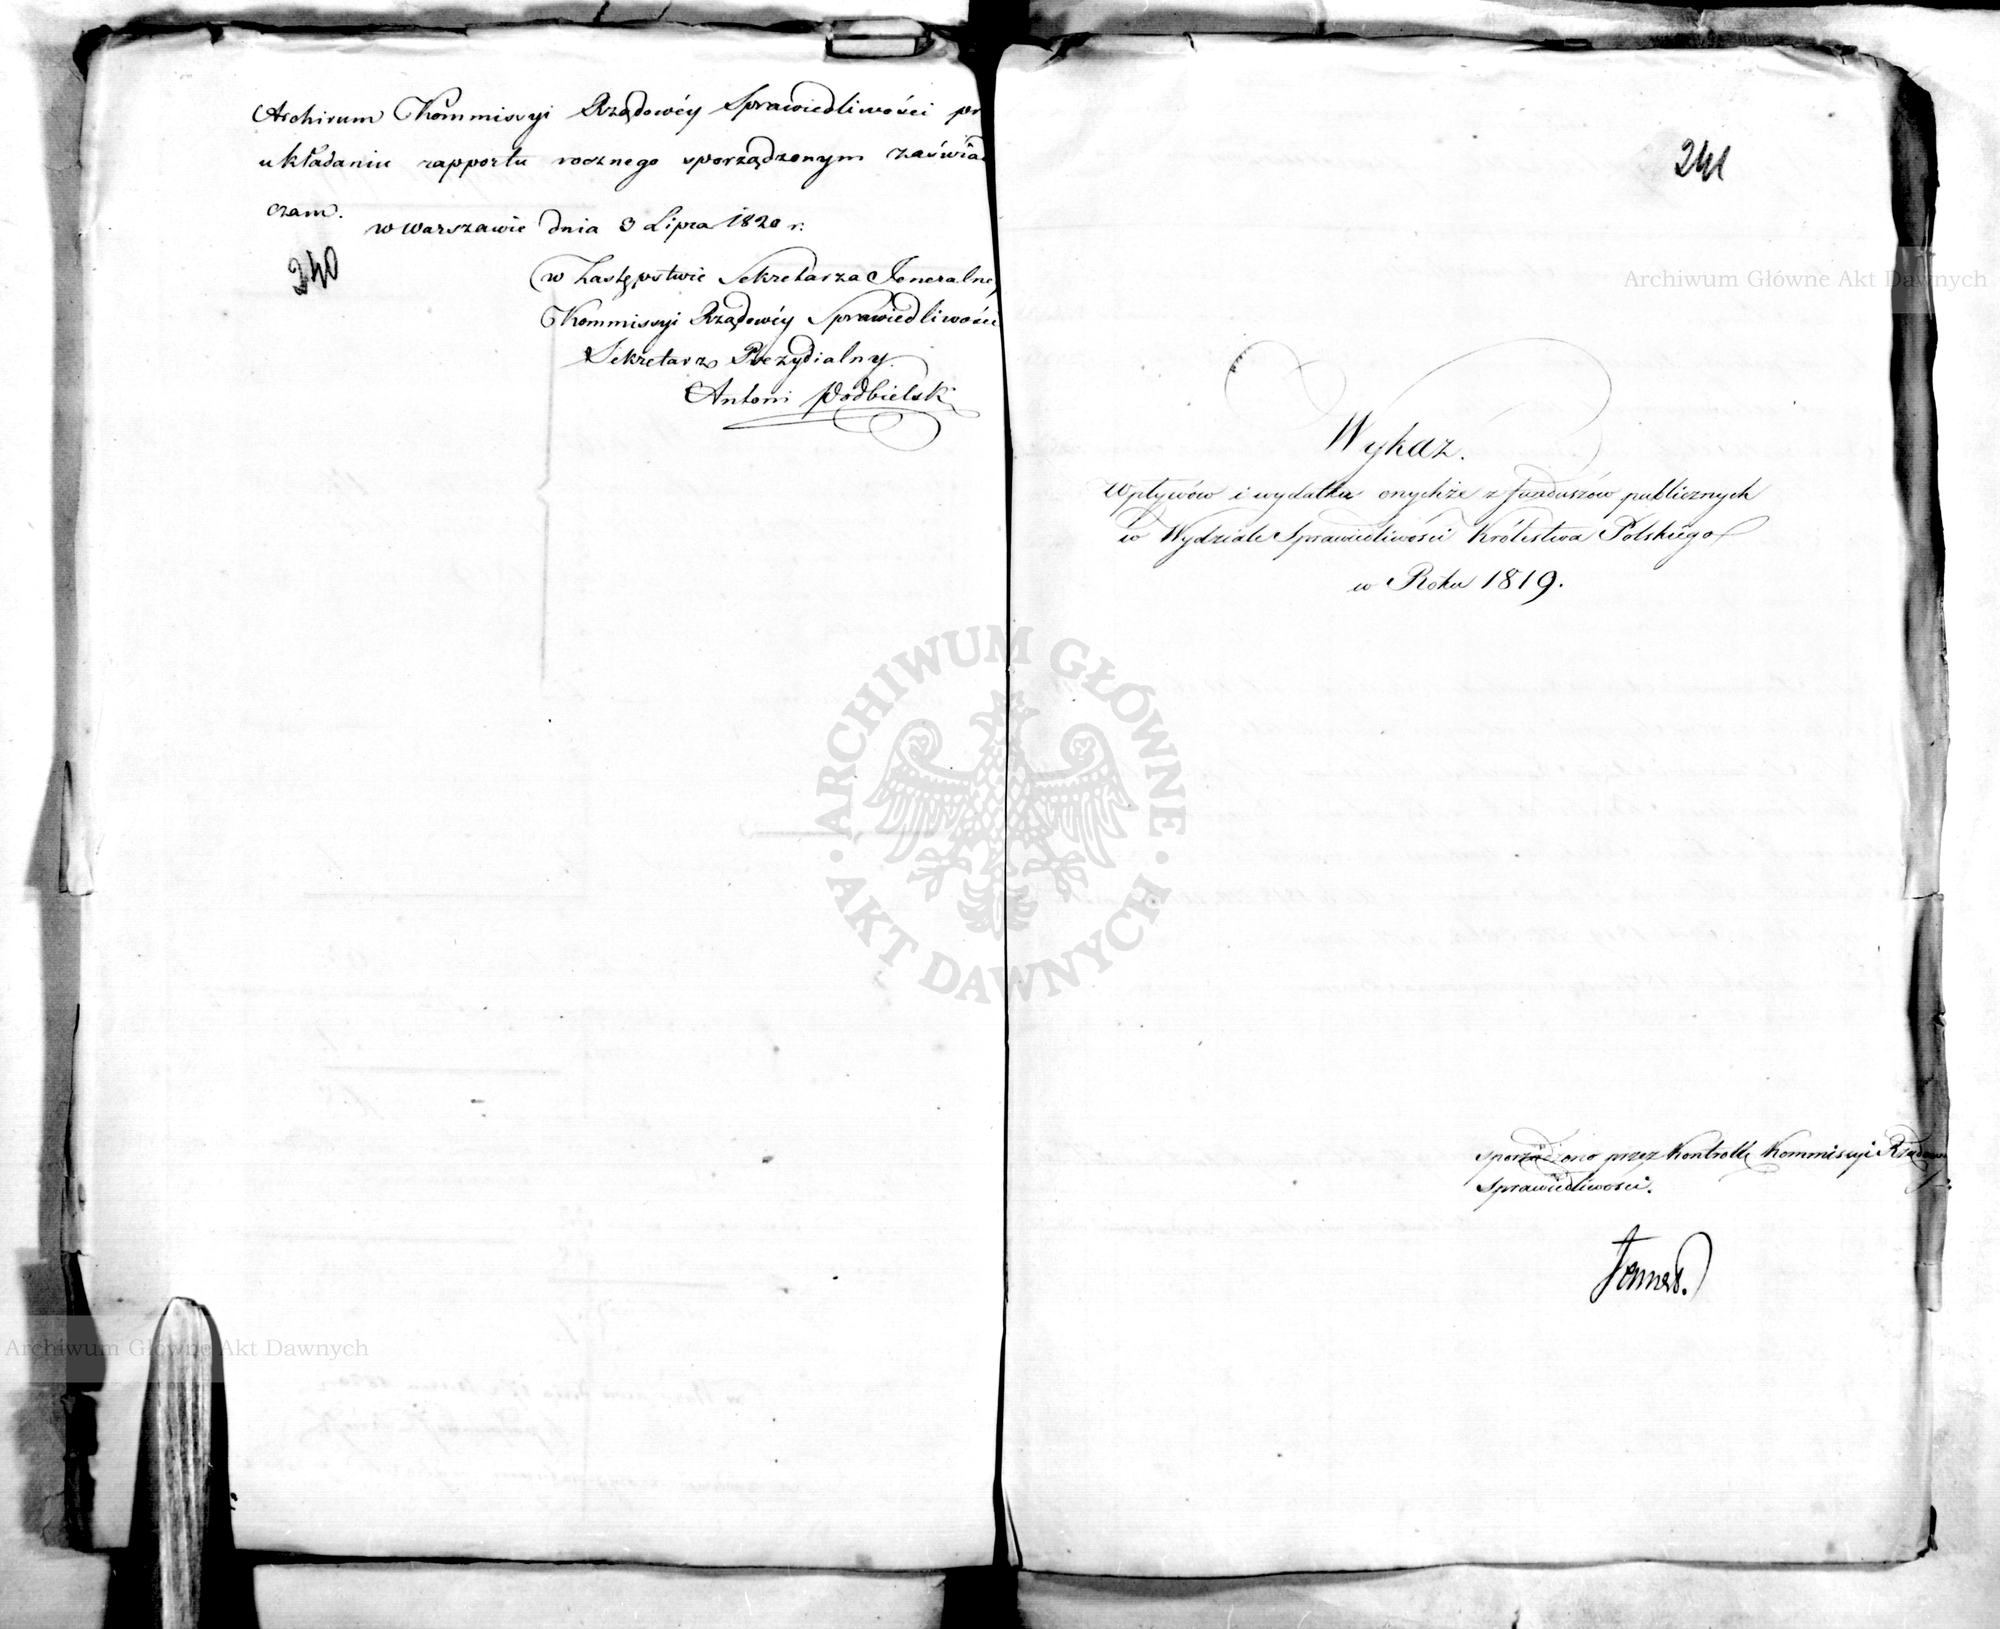 Archivum Kommissyi Rządowéy Sprawiedliwości pr
układaniu rapportu rocznego sporządzonym zaświad
czam.
w Warszawie dnia 3 Lipca 1820 r.
240
w Zastępstwie Sekretarza Jeneralne
Kommissyi Rządowéy Sprawiedliwości
Sekretarz Prezydialny.
Antoni Podbielski
241
Wykaz.
Wpływów i wydatku onychże z funduszów publicznych
w Wydziale Sprawiedliwości Królestwa Polskiego
w Roku 1819.
sporządzono przez Kontrollę Kommissyi Rządowéy
Sprawiedliwości.
Archiwum Główne Akt Dawnych
ARCHIWUM GŁÓWNE
AKT DAWNYCH
Archiwum Główne Akt Dawnych